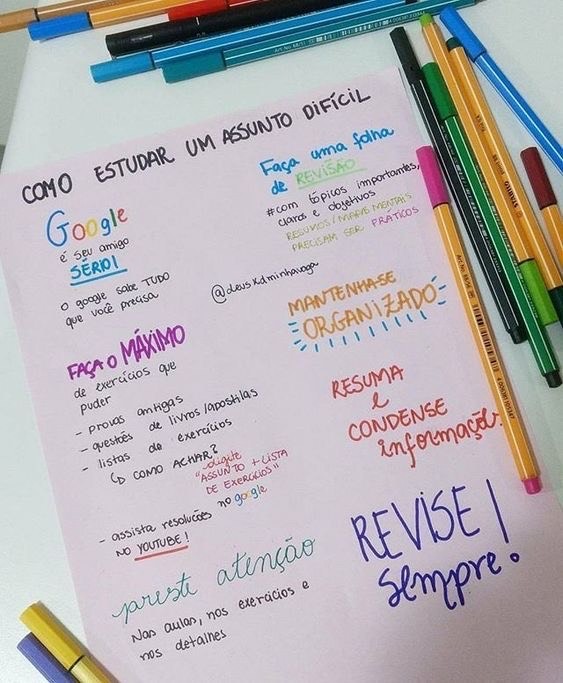 COMO ESTUDAR UM ASSUNTO DIFÍCIL
Google
é seu amigo
SÉRIO!
O google sabe TUDO
que você precisa
Faça uma folha
de REVISÃO
#com tópicos importantes,
claros e objetivos
RESUMOS/MAPAS MENTAIS
PRECISAM SER PRÁTICOS
@deusxdminhavaga
FAÇA O MÁXIMO
de exercícios que
puder
- provas antigas
- questões de livros/apostilas
- listas de exercícios
COMO ACHAR?
"digite
ASSUNTO + LISTA
DE EXERCÍCIOS"
no google
- assista resoluções
NO YOUTUBE!
preste atenção
Nas aulas, nos exercícios e
nos detalhes
MANTENHA-SE
ORGANIZADO
RESUMA
e
CONDENSE
informações.
REVISE!
sempre.